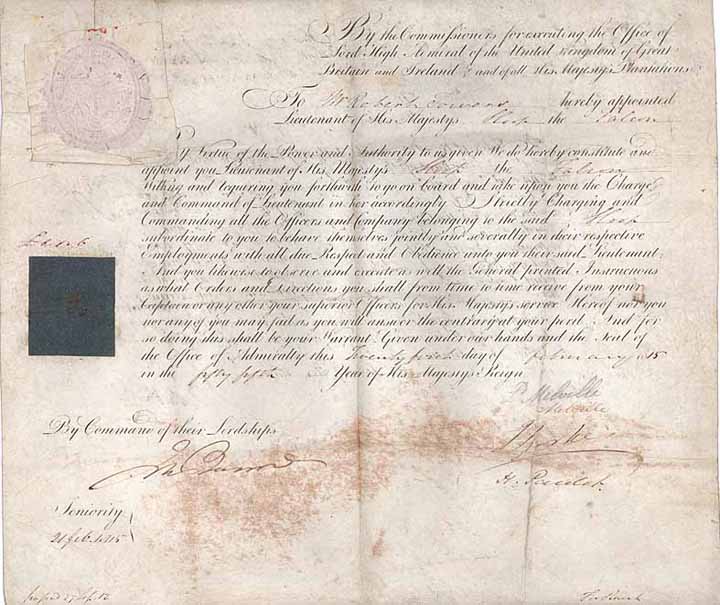 By the Commissioners for executing the Office of
Lord High Admiral of the United Kingdom of Great
Britain and Ireland &c and of all His Majesty's Plantations
To Mr Robert hereby appointed
Lieutenant of His Majesty's Sloop the Falcon
By Virtue of the Power and Authority to us given We do hereby constitute and
appoint you Lieutenant of His Majesty's Sloop the Falcon
Willing and requiring you forthwith to go on board and take upon you the Charge
and Command of Lieutenant in her accordingly Strictly Charging and
Commanding all the Officers and Company belonging to the said Sloop
subordinate to you to behave themselves jointly and severally in their respective
Employments with all due Respect and Obedience unto you their said Lieutenant;
And you likewise to observe and execute as well the General printed Instructions
as what Orders and Directions you shall from time to time receive from your
Captain or any other your superior Officers for His Majesty's service Hereof nor you
nor any of you may fail as you will answer the contrary at your peril And for
so doing this shall be your Warrant Given under our hands and the Seal of
the Office of Admiralty this twenty first day of February 1815
in the fifty fifth Year of His Majesty's Reign
Melville
Melville
By Command of their Lordships
J Yorke
H. Paulet
Seniority
21 feb. 1815